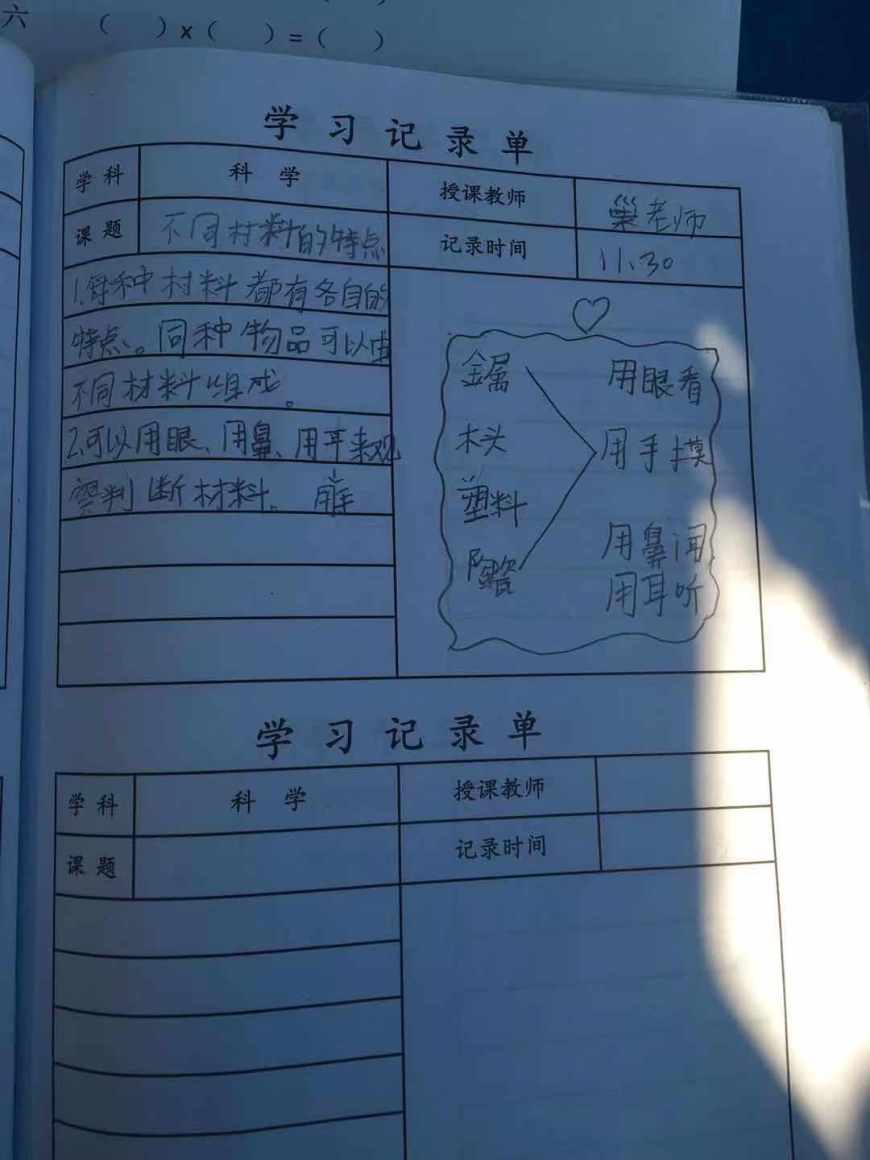 六 （ ）×（ ）=（ ）
学习记录单
学科 科学 授课教师 巢老师
课题 不同材料的特点 记录时间 11.30
1.每种材料都有各自的
特点。同种物品可以由
不同材料组成。
2.可以用眼、用鼻、用耳来观
察判断材料。用手
金属 用眼看
木头 用手摸
塑料
陶瓷 用鼻闻
用耳听
学习记录单
学科 科学 授课教师
课题 记录时间